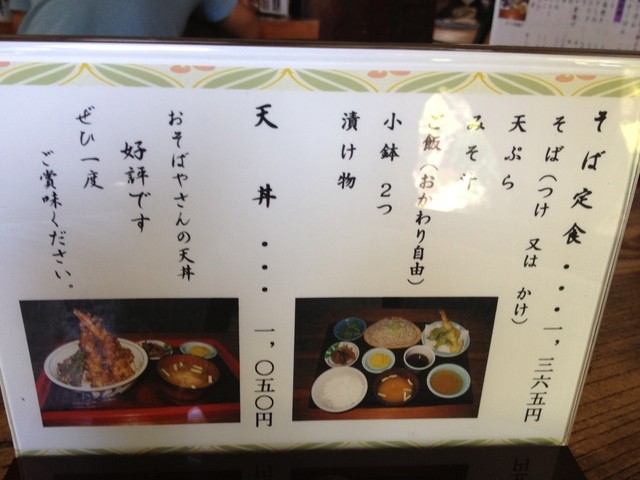 そば定食・・・一，三六五円
そば（つけ 又は かけ）
天ぷら
みそ汁
ご飯（おかわり自由）
小鉢 2つ
漬け物
天丼・・・一，〇五〇円
おそばやさんの天丼
好評です
ぜひ一度
ご賞味ください。